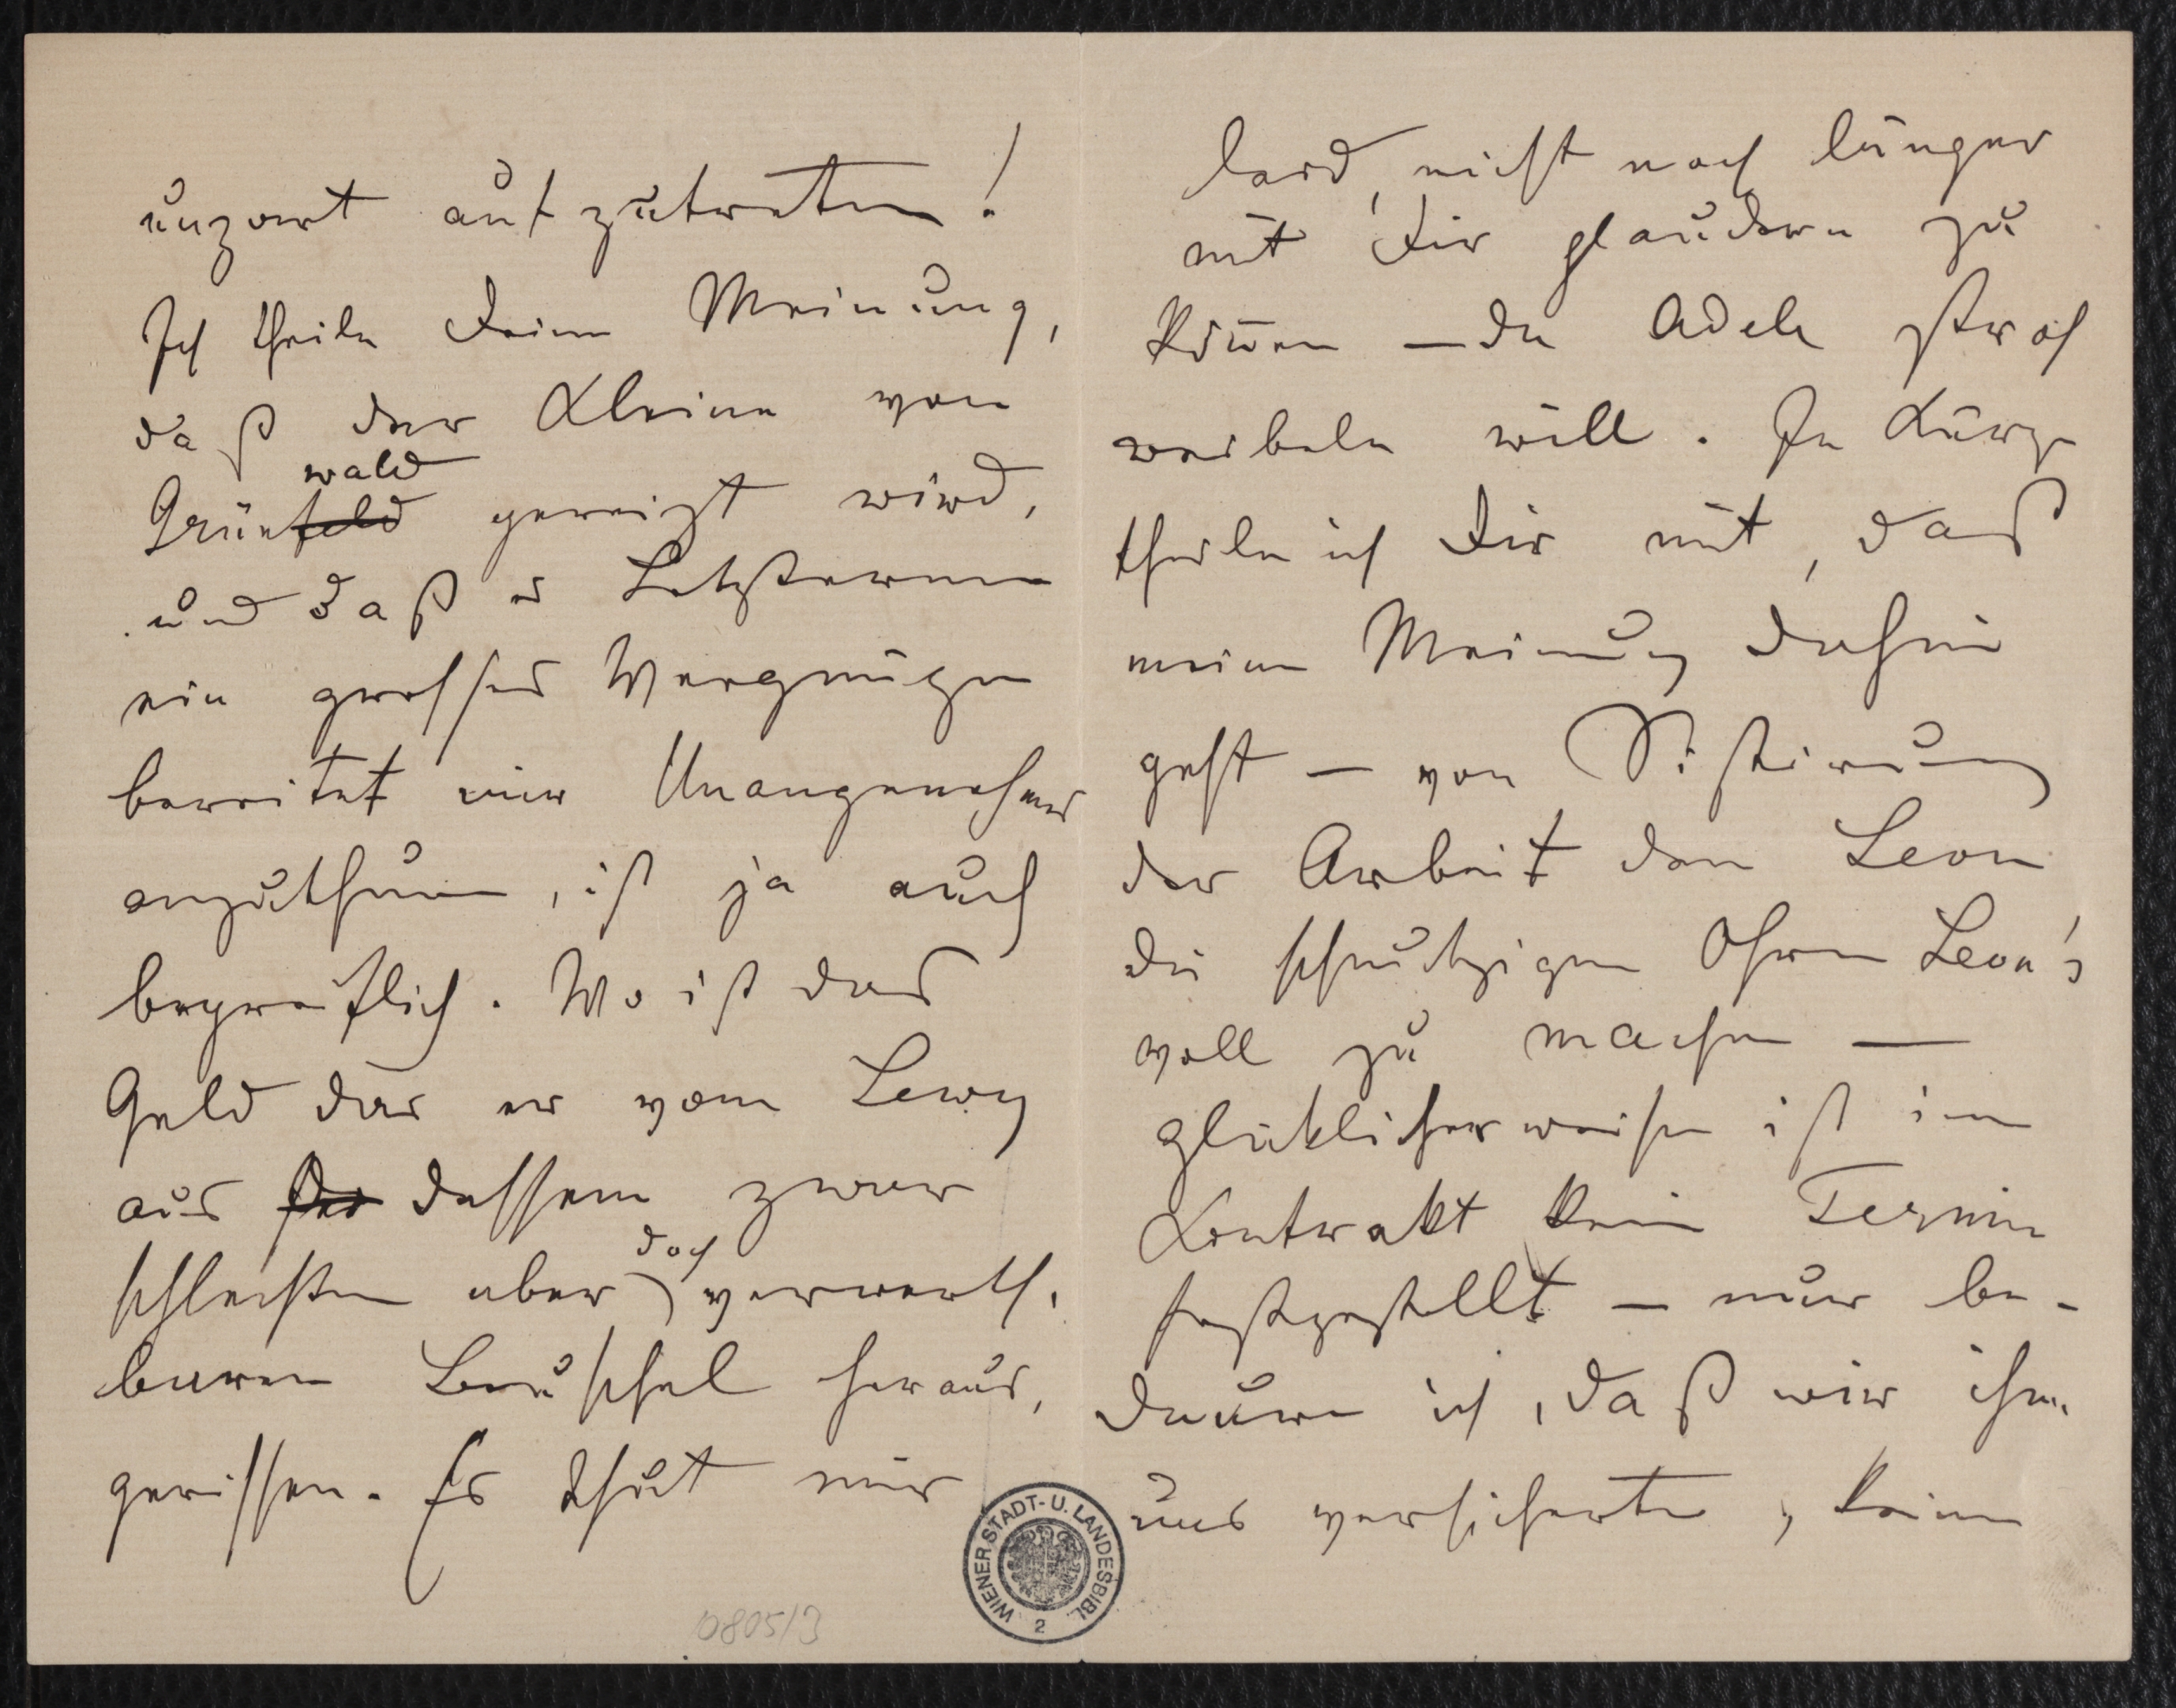 unzart aufzutreten!
Ich theile Deine Meinung,
daß der Kleine von
wald
Grünfeld gereizt wird,
und daß es Letzterem
ein grosses Vergnügen
bereitet mir Unangenehmes
anzuthun, ist ja auch
begreiflich. Wo ist das
Geld das er vom Lewy
aus der dessem zwar
doch
schlechten aber verwerth-
baren Beuschel heraus,
gerissen. Es thut mir
leid, nicht noch länger
mit Dir plaudern zu
können — da Adele
will. In Kürze
theile ich Dir mit, daß
meine Meinung dahin
geht — von Sistirung
der Arbeit dem Leon
die schmutzigen Ohren Leon's
voll zu machen —
glüklicherweise ist im
Kontrakt kein Termin
festgestellt — nur be-
daure ich, daß wir ihm
uns versicherte, keine
WIENER STADT- U. LANDESBIBL.
2